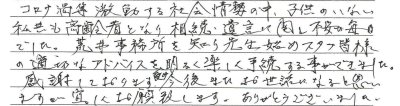 コロナ渦等激動する社会情勢の中、子供のいない
私共も高齢者となり相続・遺言に関し不安な毎日
でした。荒井事務所を知り先生始めスタッフ皆様
の適切なアドバイスを頂き明るく楽しく手続する事ができました。
感謝しております。今後またお世話になると思い
ますが宜しくお願い致します。ありがとうございました。